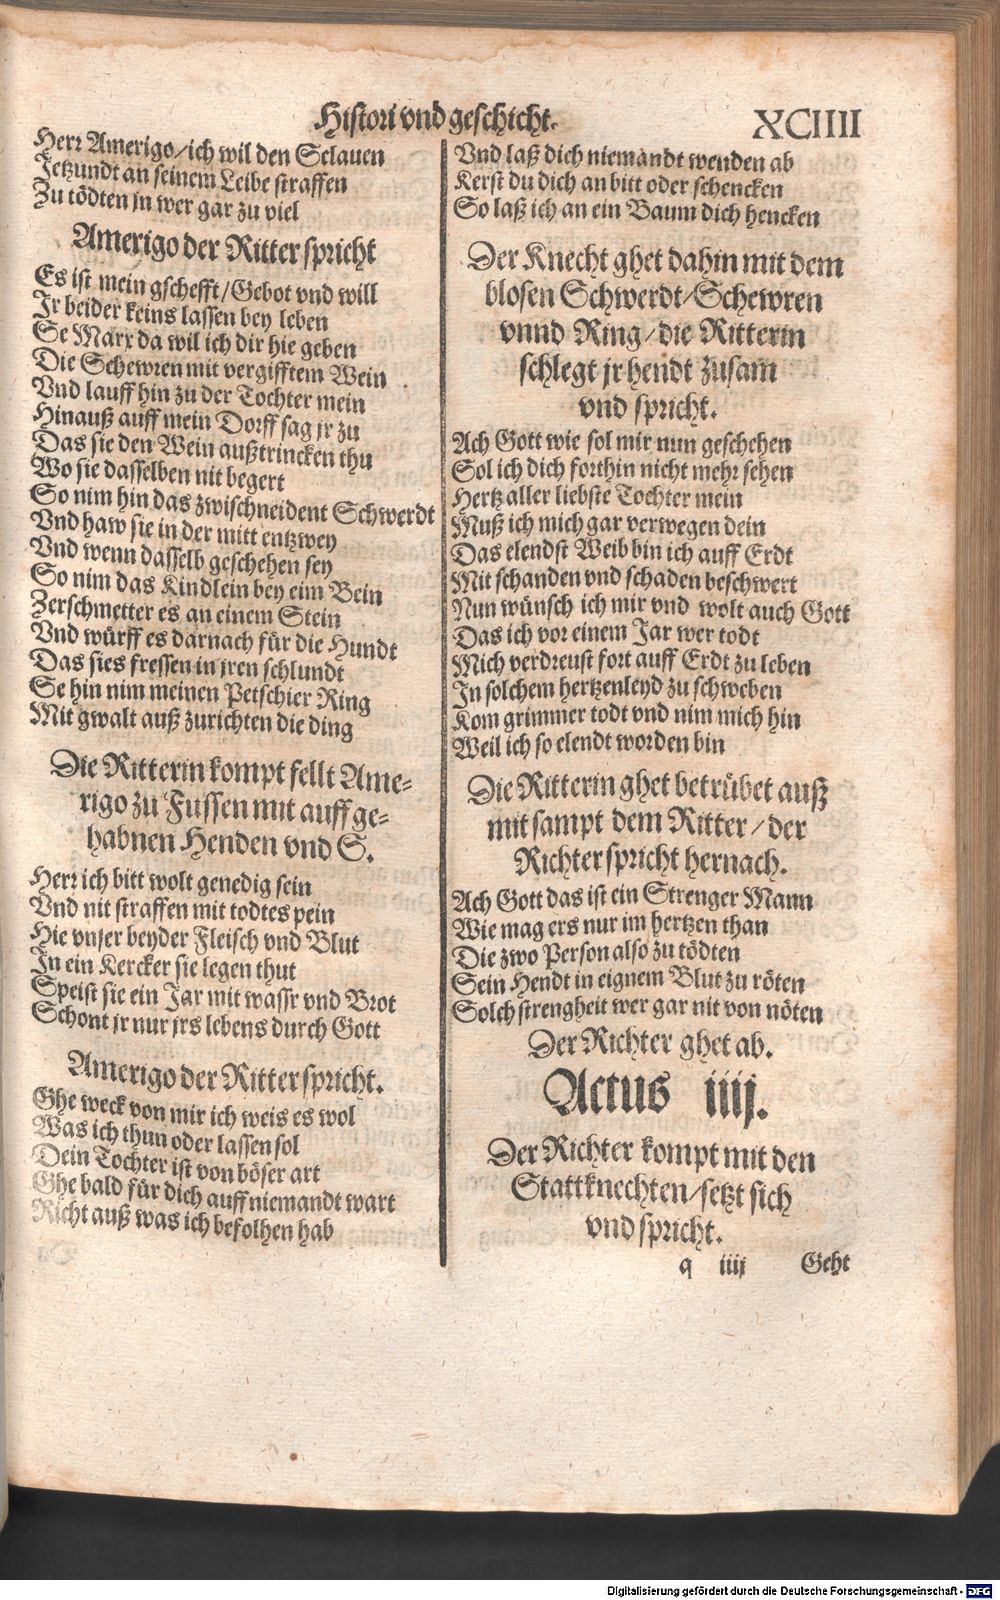 Histori vnd geschicht.
XCIIII
Herr Amerigo/ich wil den Sclauen
Jetzundt an seinem Leibe straffen
Zu tödten jn wer gar zu viel
Amerigo der Ritter spricht
Es ist mein gschefft/Gebot vnd will
Jr beider keins lassen bey leben
Se Marx da wil ich dir hie geben
Die Schewren mit vergifftem Wein
Vnd lauff hin zu der Tochter mein
Hinauß auff mein Dorff sag jr zu
Das sie den Wein außtrincken thu
Wo sie dasselben nit begert
So nim hin das zwischneident Schwerdt
Vnd haw sie in der mitt entzwey
Vnd wenn dasselb geschehen sey
So nim das Kindlein bey eim Bein
Zerschmetter es an einem Stein
Vnd würff es darnach für die Hundt
Das sies fressen in jren schlundt
Se hin nim meinen Petschier Ring
Mit gwalt auß zurichten die ding
Die Ritterin kompt fellt Ame-
rigo zu Fussen mit auff ge-
habnen Henden vnd S.
Herr ich bitt wolt genedig sein
Vnd nit straffen mit todtes pein
Hie vnser beyder Fleisch vnd Blut
Jn ein Kercker sie legen thut
Speist sie ein Jar mit wassr vnd Brot
Schont jr nur jrs lebens durch Gott
Amerigo der Ritter spricht.
Ghe weck von mir ich weis es wol
Was ich thun oder lassen sol
Dein Tochter ist von böser art
Ghe bald für dich auff niemandt wart
Richt auß was ich befolhen hab
Vnd laß dich niemandt wenden ab
Kerst du dich an bitt oder schencken
So laß ich an ein Baum dich hencken
Der Knecht ghet dahin mit dem
blosen Schwerdt/Schewren
vnnd Ring/die Ritterin
schlegt jr hendt zusam
vnd spricht.
Ach Gott wie sol mir nun geschehen
Sol ich dich forthin nicht mehr sehen
Hertz aller liebste Tochter mein
Muß ich mich gar verwegen dein
Das elendst Weib bin ich auff Erdt
Mit schanden vnd schaden beschwert
Nun wünsch ich mir vnd wolt auch Gott
Das ich vor einem Jar wer todt
Mich verdreust fort auff Erdt zu leben
Jn solchem hertzenleyd zu schweben
Kom grimmer todt vnd nim mich hin
Weil ich so elendt worden bin
Die Ritterin ghet betrübet auß
mit sampt dem Ritter/der
Richter spricht hernach.
Ach Gott das ist ein Strenger Mann
Wie mag ers nur im hertzen than
Die zwo Person also zu tödten
Sein Hendt in eignem Blut zu röten
Solch strengheit wer gar nit von nöten
Der Richter ghet ab.
Actus iiij.
Der Richter kompt mit den
Stattknechten/setzt sich
vnd spricht.
q iiij Geht
Digitalisierung gefördert durch die Deutsche Forschungsgemeinschaft - DFG